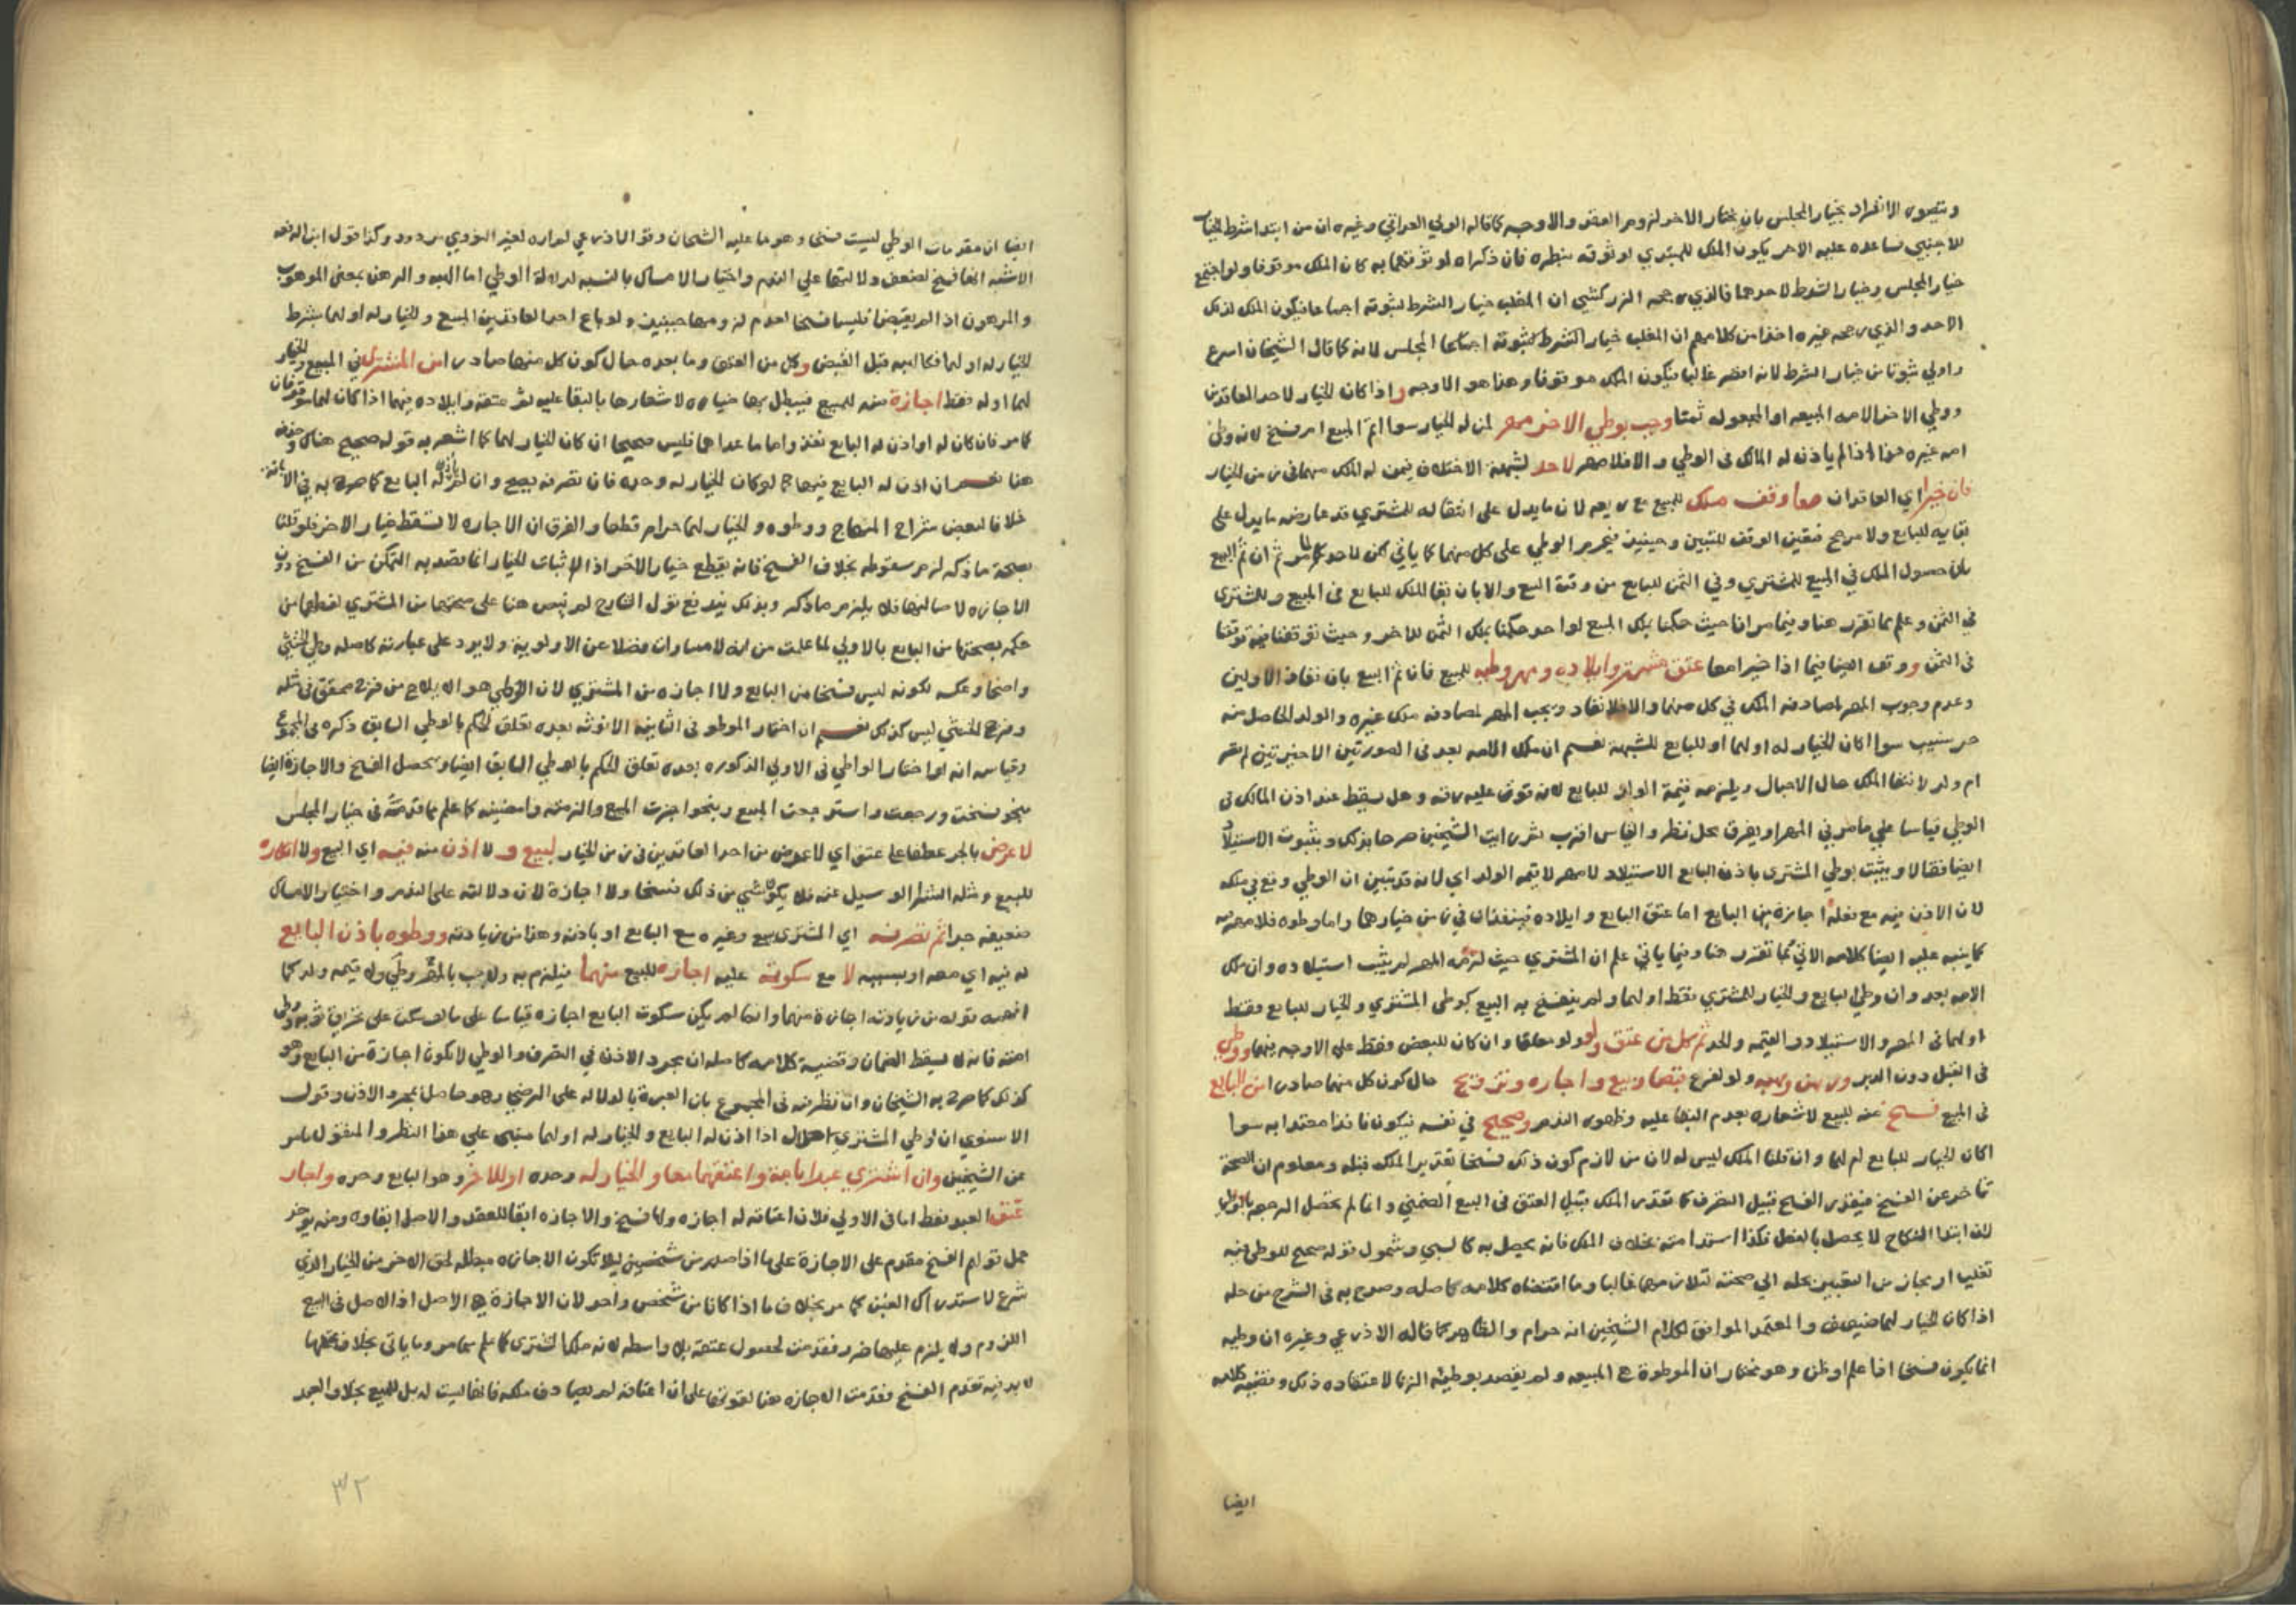 ويتصور الانفراد بخيار المجلس بان يختار الاخر لزوم العقد والاوجه كما قاله الولي العراقي وغيره ان من ابتدا شرط الخيار
للاجنبي فساعده عليه الاخر يكون الملك للمبتدي لوثوقه بنظره فان ذكراه كان الملك موقوفا ولو اجتمع
خيار المجلس وخيار الشرط لاحدهما فالذي رجحه الزركشي ان المغلب خيار الشرط لثبوته اجماعا فيكون الملك لذلك
الاحد والذي رجحه غيره اخذا من كلامهم ان المغلب خيار المجلس لانه كما قال الشيخان اسرع
واولي ثبوتا من خيار الشرط لانه اقصر غالبا فيكون الملك موقوفا وهذا هو الاوجه واذا كان الخيار لاحد العاقدين
ووطي الاخر الامه المبيعه او المجعوله ثمنا وجب بوطي الاخر مهر لمن له الخيار سوا اتم البيع ام فسخ لانه وطئ
امه غيره هذا اذا لم ياذن له المالك في الوطي والا فلا مهر لا حد لشبهة الاختلاف فيمن له الملك منهما في زمن الخيار
فان خيرا اي العاقدان معا وقف ملك للمبيع مع ريعه لان ما يدل على انتقاله للمشتري قد عارضه ما يدل على
بقايه للبايع ولا مرجح فتعين الوقف للتبين وحينئذ فيحرم الوطي على كل منهما كما ياتي لكن لا حد كما مر ثم ان تم البيع
بان حصول الملك في المبيع للمشتري وفي الثمن للبايع من وقت البيع والا بان بقا الملك للبايع في المبيع وللمشتري
في الثمن وعلم مما تقرر هنا وفيما مر انا حيث حكمنا بملك المبيع لواحد حكمنا بملك الثمن للاخر وحيث توقفنا فيه توقفنا
في الثمن ووقف ايضا فيما اذا خيرا معا عتق مشتر وايلاده ومهر وطيه للمبيع فان تم البيع بان نفاذ الاولين
وعدم وجوب المهر لمصادفته الملك في كل منهما والا فلا نفاذ ويجب المهر لمصادفته ملك غيره والولد الحاصل منه
حر نسيب سوا اكان الخيار له او لهما او للبايع للشبهة نعم ان ملك الامه بعد في الصورتين الاخيرتين لم تصر
ام ولد لانتفا الملك حال الاحبال ويلزمه قيمة الولد للبايع لانه فوت عليه رقه وهل يسقط عند اذن المالك في
الوطي قياسا على ما مر في المهر او يفرق محل نظر والقياس اقرب ثم رايت الشيخين صرحا بذلك وبثبوت الاستيلاد
ايضا فقالا ويثبت بوطي المشتري باذن البايع الاستيلاد لا مهر لا قيمة الولد اي لانه قد تبين ان الوطي وقع في ملكه
لان الاذن فيه مع فعله اجازة من البايع اما عتق البايع وايلاده فينفذان في زمن خيارهما واما وطوه فلا مهر فيه
كما ينبه عليه ايضا كلامه الاتي كما تقرر هنا وفيما ياتي علم ان المشتري حيث لزمه المهر لم يثبت استيلاده وان ملك
الامه بعد وان وطي البايع والخيار للمشتري فقط او لهما ولم ينفسخ به البيع كوطي المشتري والخيار للبايع فقط
او لهما في المهر والاستيلاد والقيمه والحد ثم كل من عتق ولو معلقا وان كان للبعض فقط على الاوجه فيهما ووطي
في القبل دون الدبر ورهن وهبه ولو لفرع قبضا وبيع واجاره وتزويج حال كون كل منهما صادرا من البايع
في المبيع فسخ منه للبيع لاشعاره بعدم البقا عليه وظهور الندم وصحيح في نفسه فيكون نافذا معتدا به سوا
اكان الخيار للبايع ام لهما وان قلنا الملك ليس له لان من لازم كون ذلك فسخا تقدير الملك قبله ومعلوم ان الصحة
تتاخر عن الفسخ فيقدر الفسخ قبيل التصرف كما تقدر الملك قبيل العتق في البيع الضمني وانما لم تحصل الرجعه بالوطي
لان ابتدا النكاح لا يحصل بالفعل فكذا استدامته بخلاف الملك فانه يحصل به كالسبي وشمول قوله صحيح للوطي فيه
تغليب او تجاز من التعبير بحله الي صحته لتلازمهما غالبا وما اقتضاه كلامه كاصله وصرح به في الشرح من حله
اذا كان الخيار لهما ضعيف والمعتمد الموافق لكلام الشيخين انه حرام والظاهر كما قاله الاذرعي وغيره ان وطيه
انما يكون فسخا اذا علم او ظن وهو مختار ان الموطوة هي المبيعه ولم يقصد بوطيه الزنا لاعتقاده ذلك وقضيه كلامه
ايضا
ايضا ان مقدمات الوطي ليست فسخا وهو ما عليه الشيخان وقول الاذرعي لم اره لغير النووي مردود وكذا قول ابن الرفعه
الاشبه انها فسخ لضعف دلالتها علي الندم واختيار الامساك بالنسبه لدلالة الوطي اما الهبه والرهن بمعني الموهوب
والمرهون اذا لم يقبضا فليسا فسخا لعدم لزومهما حينئذ ولو باع احد العاقدين المبيع والخيار له او لهما بشرط
الخيار له او لهما فكالهبه قبل القبض وكل من العتق وما بعده حال كون كل منها صادرا من المشتري في المبيع والخيار
لهما او له فقط اجازة منه للبيع فيبطل بها خياره لاشعارها بالبقا عليه ثم عتقه وايلاده فيما اذا كان لهما موقوفان
كما مر فان كان له او اذن له البايع نفذ واما ما عداهما فليس صحيحا ان كان الخيار لهما كما اشعر به قوله صحيح هناك وحذفه
هنا نعم ان اذن له البايع فيها او كان الخيار له وحده فان تصرفه يصح وان لم ياذن له البايع كما صرح به في
خلافا لبعض شراح المنهاج ووطوه والخيار لهما حرام قطعا والفرق ان الاجاره لا تسقط خيار الاخر فلو قلنا
بصحة ما ذكر لزم سقوطه بخلاف الفسخ فانه يقطع خيار الاخر اذ الاثبات للخيار انما قصد به التمكن من الفسخ دون
الاجازه لاصالتها فلا يلزم ما ذكر وبذلك يندفع قول الشارح لم ينص هنا على صحتها من المشتري لفهمها من
حكمه بصحتها من البايع بالاولي لما علمت من انه لا مساوات فضلا عن الاولوية ولا يرد على عبارته كاصله وطي الخنثي
واضحا وعكسه لكونه ليس فسخا من البايع ولا اجازه من المشتري لان الوطي هو الايلاج من فرج محقق في مثله
وفرج الخنثي ليس كذلك نعم ان اختار الموطو في الثانيه الانوثه بعده تعلق الحكم بالوطي السابق ذكره في المجموع
وقياسه انه لو اختار الواطي في الاولي الذكوره بعده تعلق الحكم بالوطي السابق ايضا ويحصل الفسخ والاجازة ايضا
بنحو فسخت ورجعت واسترجعت المبيع وبنحو اجزت البيع والزمته وامضيته كما علم مما قدمته في خيار المجلس
لا عرض بالجر عطفا على عتق اي لا عرض من احد العاقدين في زمن الخيار لبيع و لا اذن منه فيه اي البيع ولا انكاره
للبيع ومثله النظر لو سيل عنه فلا يكون شي من ذلك فسخا ولا اجازة لان دلالته على الندم واختيار الامساك
ضعيفه جدا ثم تصرفه اي المشتري ببيع وغيره مع البايع او باذنه وهذا من زيادته ووطوه باذن البايع
له فيه اي معه او بسببه لا مع سكوته عليه اجازه للبيع منهما فيلزم به ولا يجب بالوطي مهر ولا قيمه ولد كما
افهمه قوله من زيادته اجازة منهما وانما لم يكن سكوت البايع اجازه قياسا على ما لو سكت على تخريق ثوبه ووطي
امته فانه لا يسقط الضمان وقضيه كلامه كاصله ان مجرد الاذن في التصرف والوطي لا يكون اجازة من البايع وهو
كذلك كما صرح به الشيخان وان نظر فيه في المجموع بان العبرة بالدلاله على الرضي وهو حاصل بمجرد الاذن وقول
الاسنوي ان وطي المشتري حلال اذا اذن له البايع والخيار له او لهما مبني علي هذا النظر والمنقول ما مر
عن الشيخين وان اشتري عبدا بامة واعتقهما معا والخيار له وحده او للاخر وهو البايع وحده ولجاز
عتق العبد فقط اما في الاولي فلان اعتاقه له اجازه ولها فسخ والاجازه ابقا للعقد والاصل ابقاوه ومنه يوخذ
حمل قولهم الفسخ مقدم على الاجازة على ما اذا صدر من شخصين ليلا تكون الاجازه مبطله لحق الاخر من الخيار الذي
شرع لاستدراك الغبن كما مر بخلاف ما اذا كانا من شخص واحد لان الاجازة هي الاصل اذ الاصل في البيع
اللزوم ولا يلزم عليها ضرر فقدمت لحصول عتقه بلا واسطه لانه ملك المشتري كما علم مما مر وما ياتي بخلاف عتقها
لا بد فيه تقدم الفسخ فقدمت الاجازه هنا لقوتها على ان اعتاقه لم يصادف ملكه فانها ليست له بل للبيع بخلاف العبد
٣٢